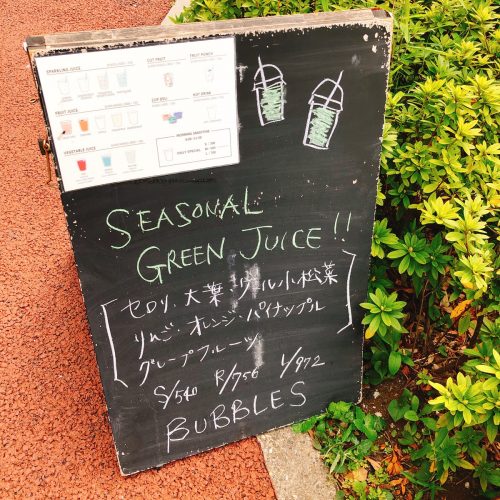 SPARKLING JUICE
CUT FRUIT
FRUIT PUNCH
FRUIT JUICE
HOT DRINK
VEGETABLE JUICE
SEASONAL
GREEN JUICE!!
セロリ、大葉・ケール小松菜
りんご・オレンジ・パイナップル
グレープフルーツ
S/540 R/756 L/972
BUBBLES